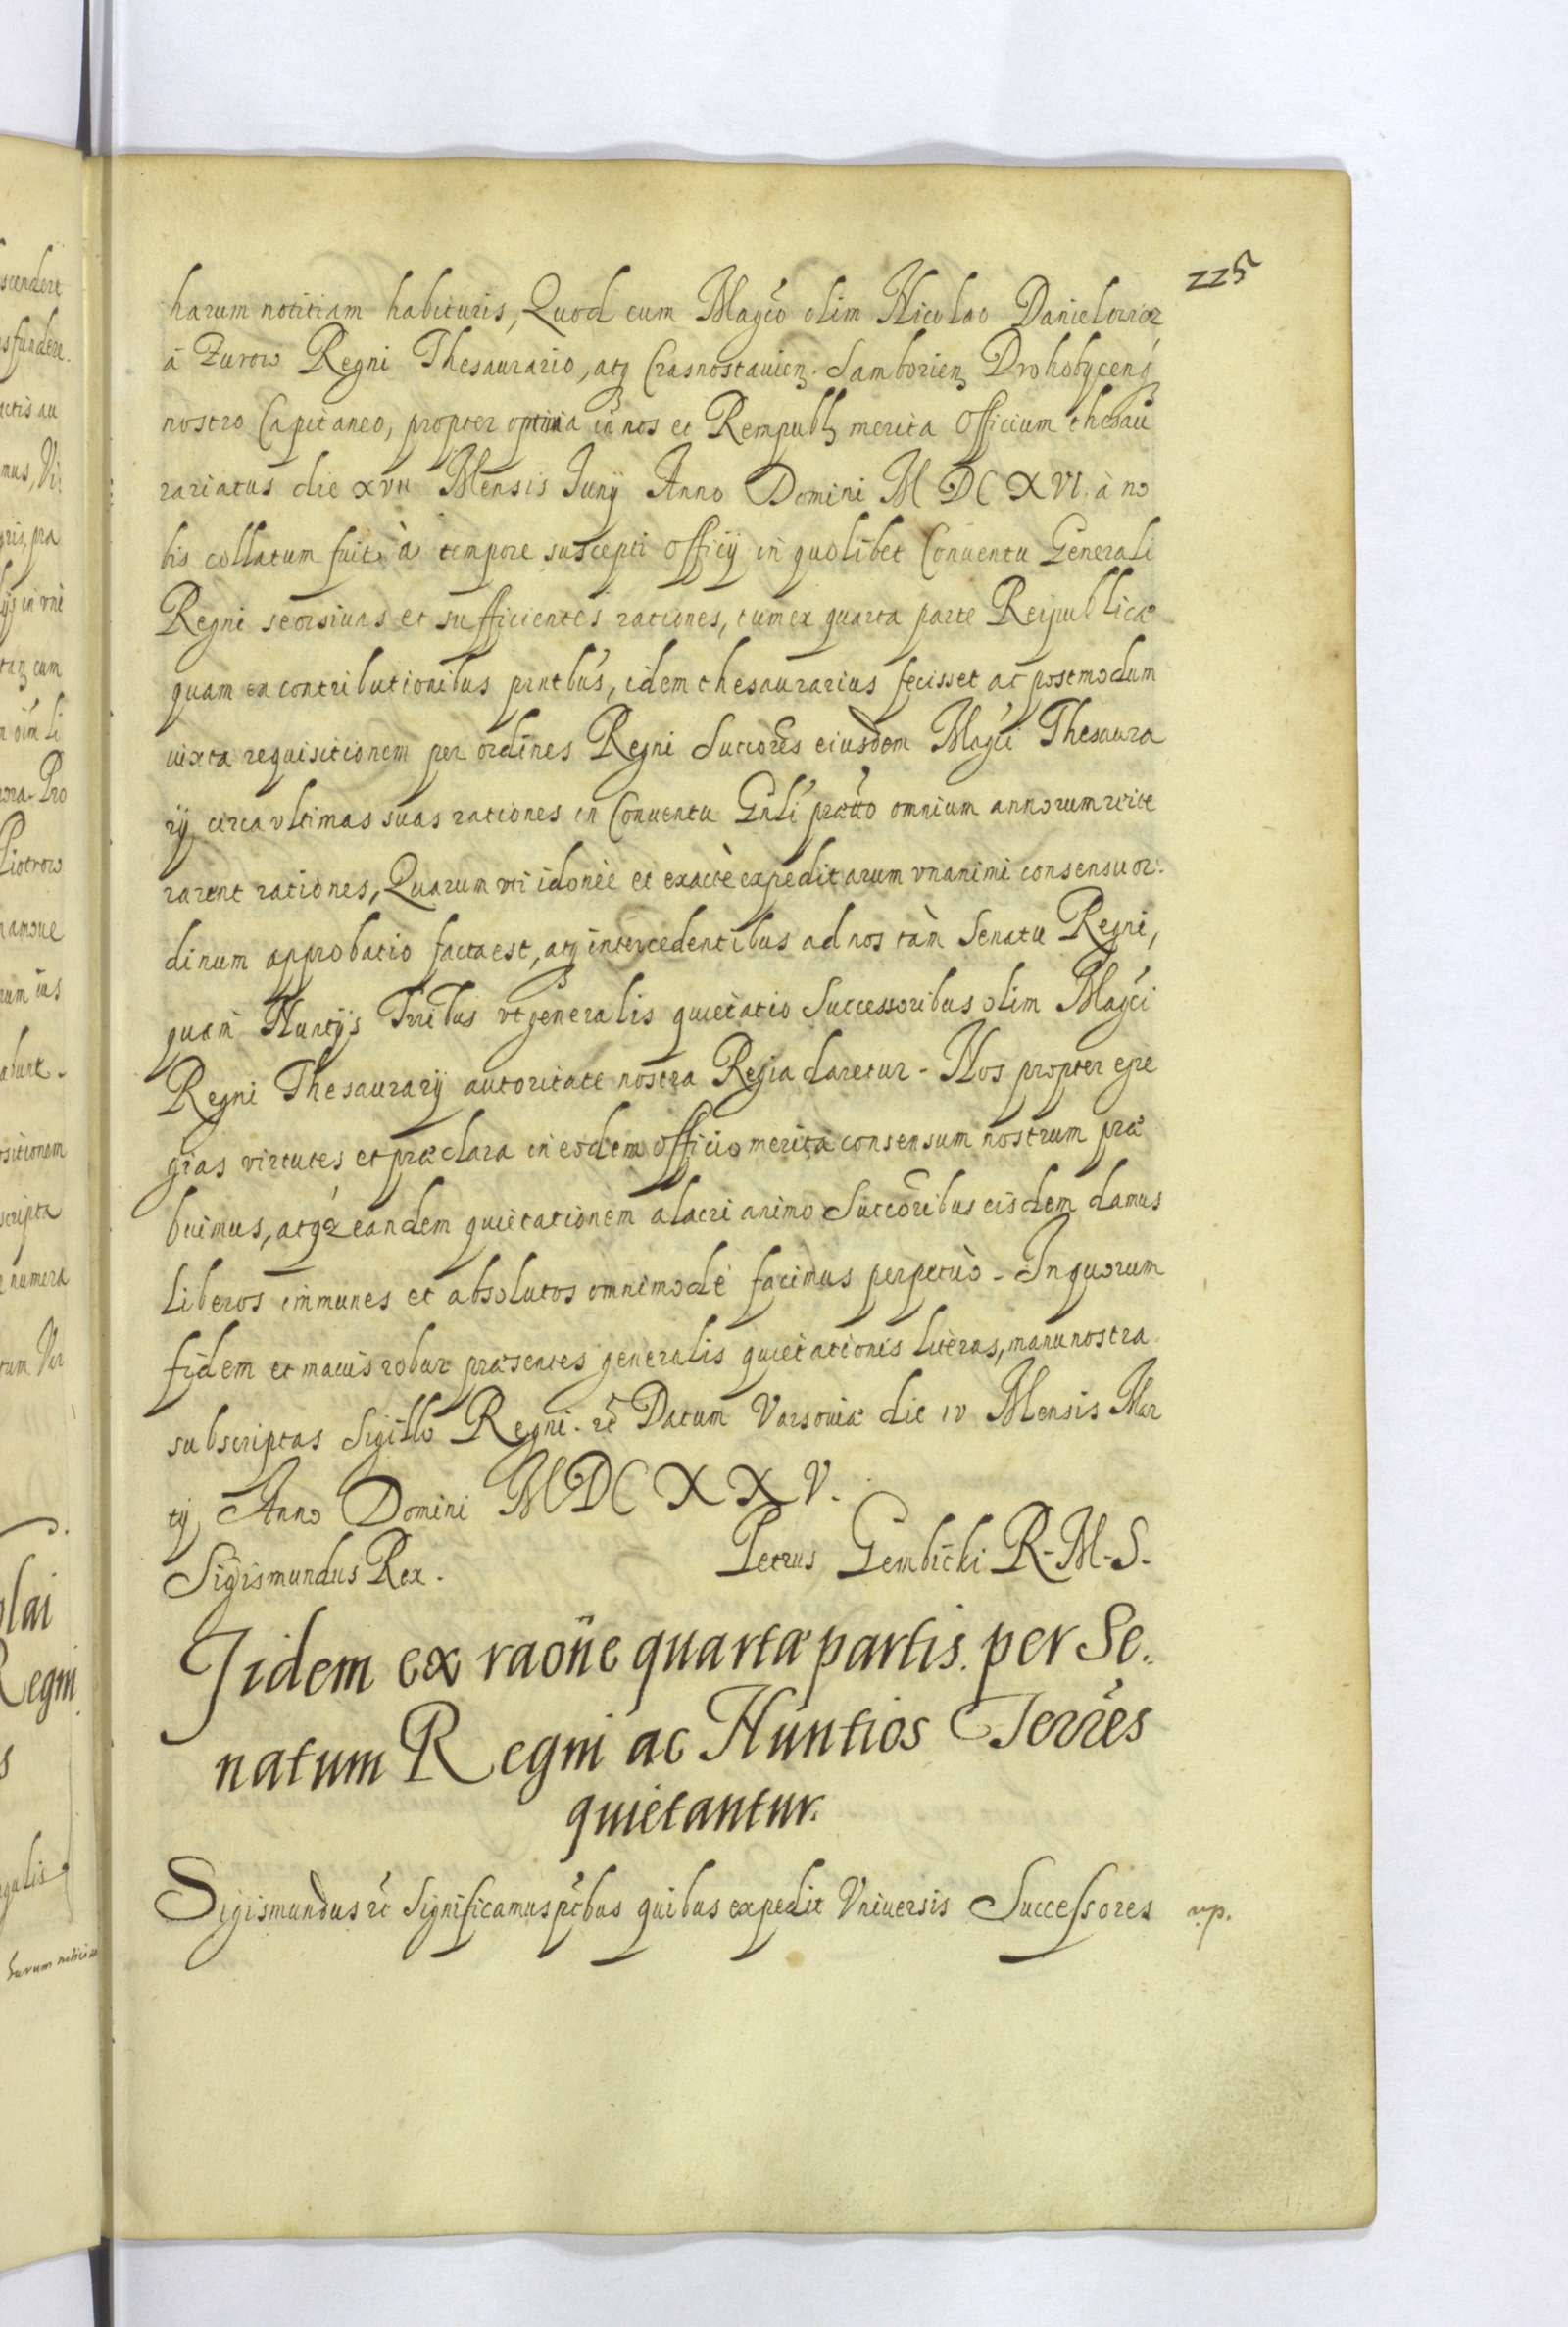 225
harum notitiam habituris, Quod cum Magco olim Nicolao Danielowicz
à Zurow Regni Thesaurario, atq Crasnostauien. Samborien Drohobycens
nostro Capitaneo, propter optima in nos et Rempubl merita Officium thesau
rariatus die XVII Mensis Junij Anno Domini MDCXVI. à no
bis collatum fuit, à tempore suscepti officij in quolibet Conuentu Generali
Regni seorsiuas et sufficientes rationes, tum ex quarta parte Reipublicæ
quam ex contributionibus pntbus, idem thesaurarius fecisset ac postmodum
iuxta requisitionem per ordines Regni Succores eiusdem Magci Thesaura
rij circa vltimas suas rationes in Conuentu Gnli prætto omnium annorum reite
rarent rationes, Quarum vti idoneè et exactè expeditarum vnanimi consensu or
dinum approbatio facta est, atq intercedentibus ad nos tàm Senatu Regni,
quam Nuntijs Trribus vt generalis quietatio Successoribus olim Magci
Regni Thesaurarij autoritate nostra Regia daretur - Nos propter egre
gias virtutes et præclara in eodem officio merita consensum nostrum præ
buimus, atq eandem quietationem alacri animo Succoribus eisdem damus
Liberos immunes et absolutos omnimodè facimus perpetuò - In quorum
fidem et maius robur præsentes generalis quietationis literas, manu nostra
subscriptas Sigillo Regni. etc Datum Varsouiæ die IV Mensis Mar
tij Anno Domini MDCXXV.
Sigismundus Rex. Petrus Gembicki R-M-S-
Iidem ex raone quartæ partis. per Se.
natum Regni ac Nuntios Terres
quietantur.
Sigismundus etc Significamus pntbus quibus expedit Vniuersis Successores